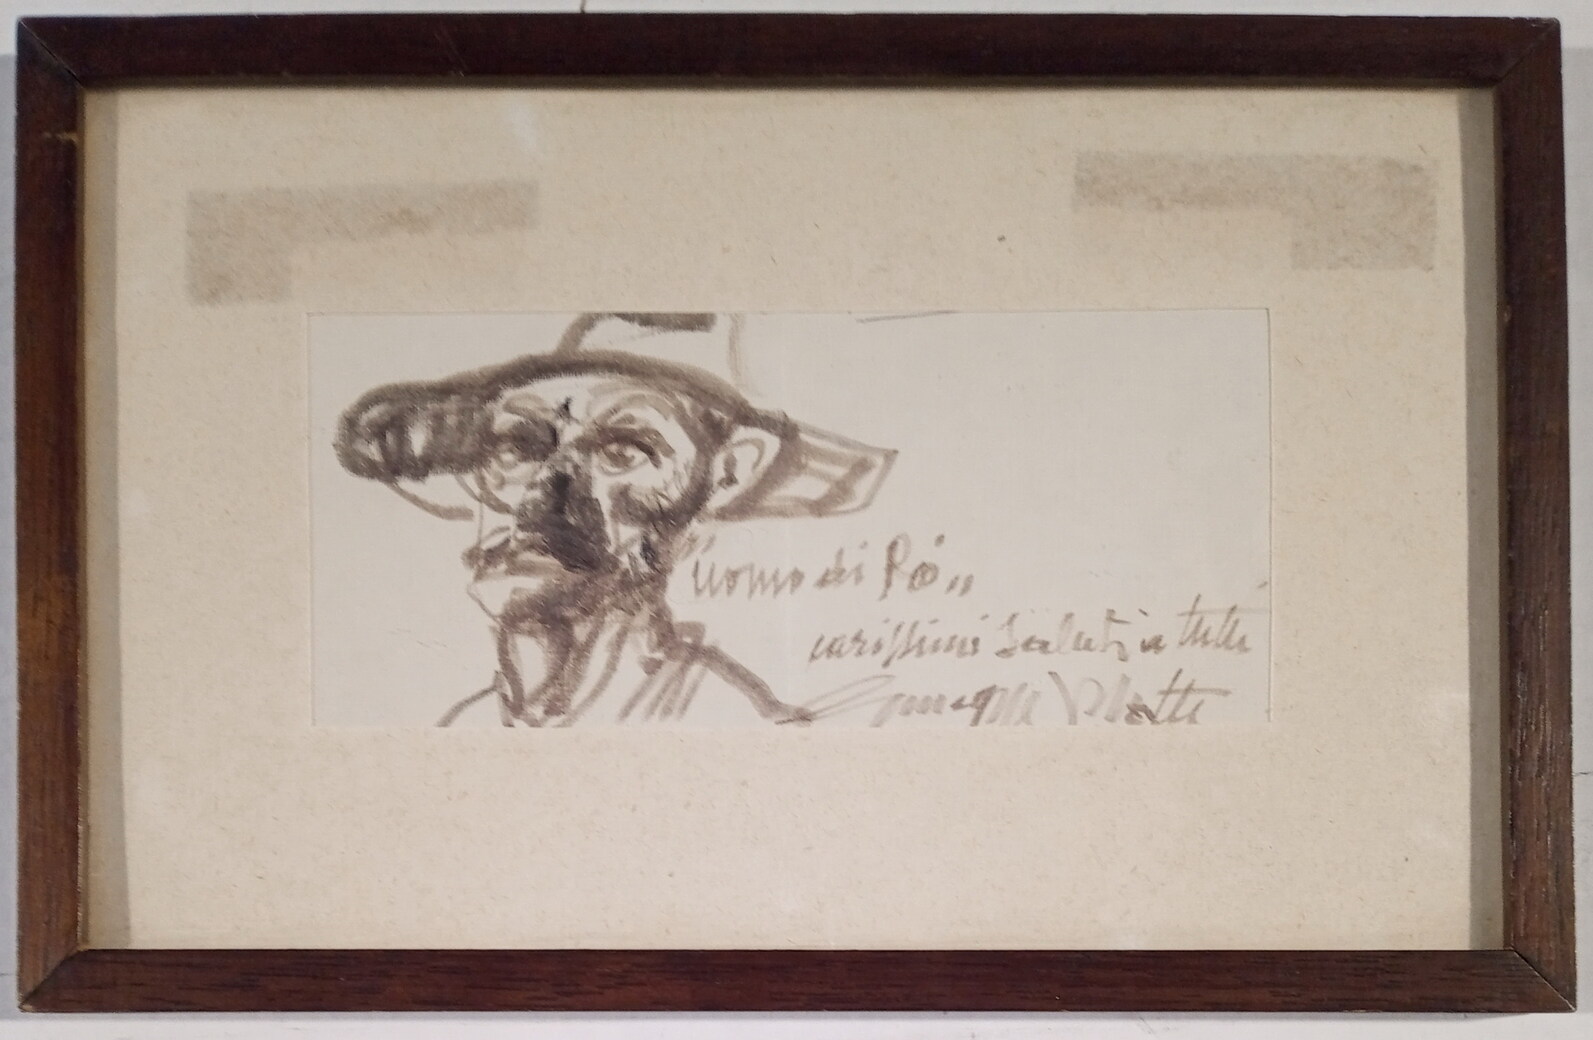 "uomo di Pò"
carissimi saluti a tutti
Giuseppe